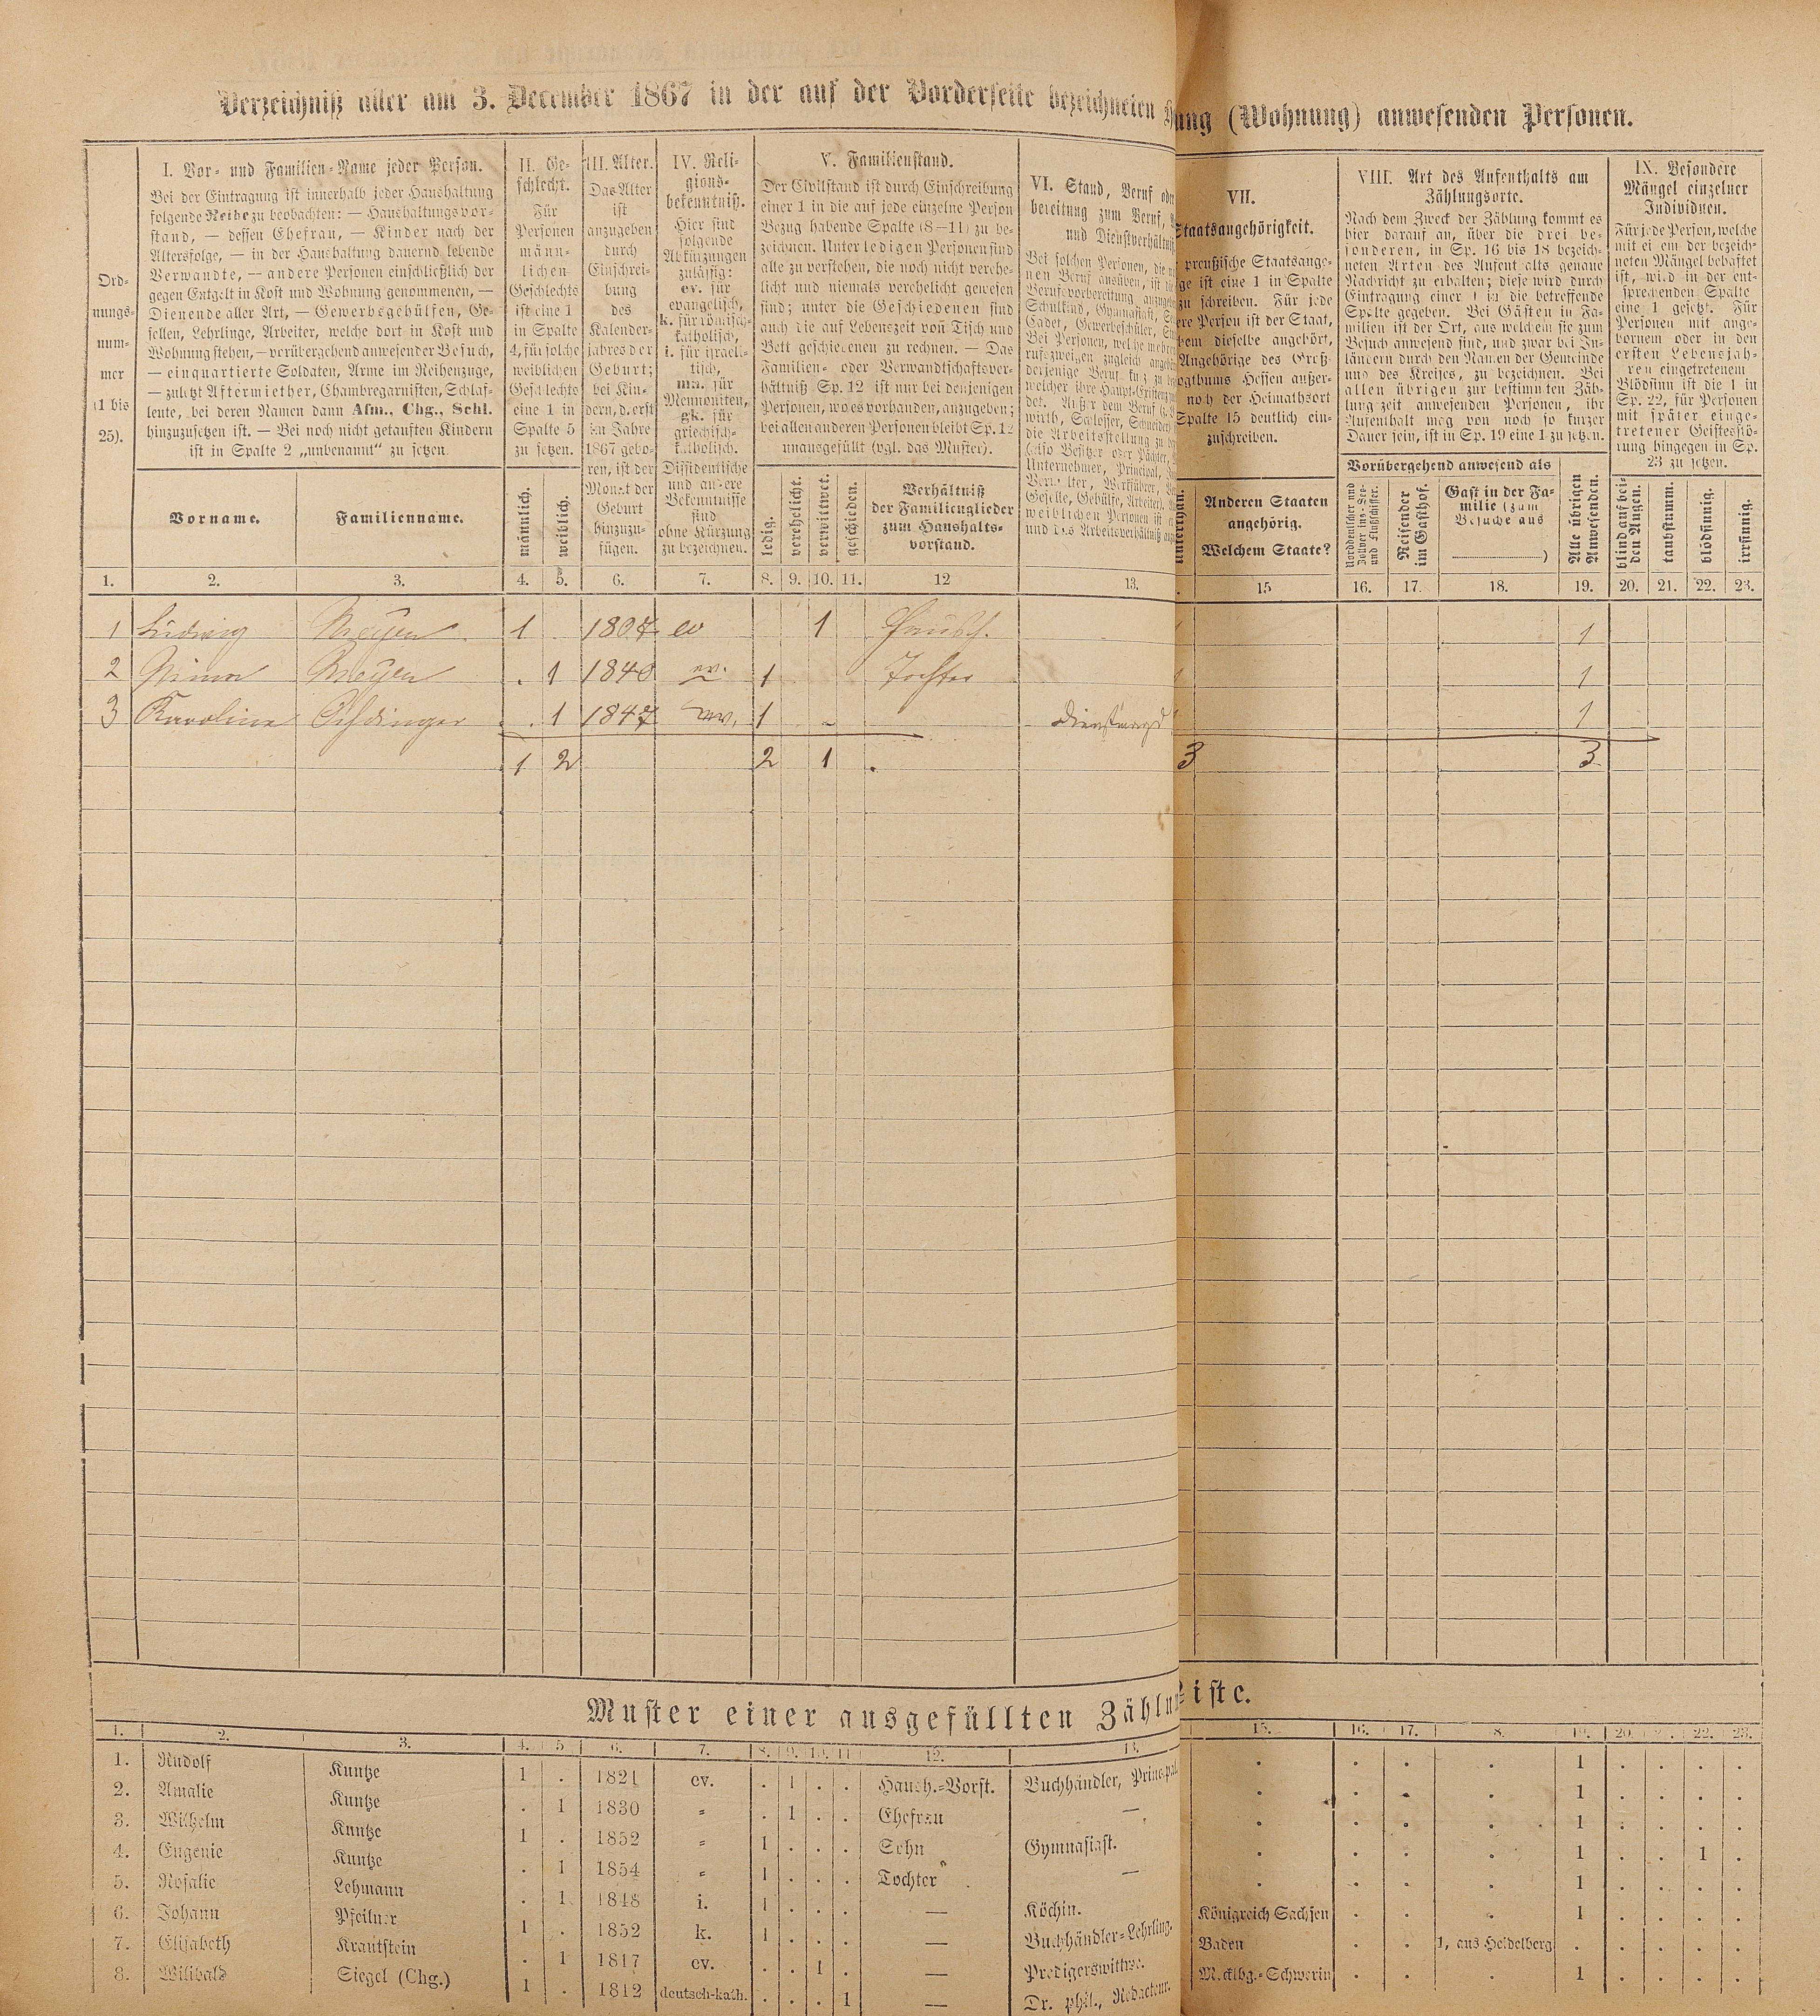 Verzeichniß aller am 3. December 1867 in der auf der Vorderseite bezeichneten
ung (Wohnung) anwesenden Personen.
Ord-
nungs-
num-
mer
(1 bis
25).
I. Vor- und Familien-Name jeder Person.
Bei der Eintragung ist innerhalb jeder Haushaltung
folgende Reihe zu beobachten: — Haushaltungsvor-
stand, — dessen Ehefrau, — Kinder nach der
Altersfolge, — in der Haushaltung dauernd lebende
Verwandte, — andere Personen einschließlich der
gegen Entgelt in Kost und Wohnung genommenen, —
Dienende aller Art, — Gewerbsgehülfen, Ge-
sellen, Lehrlinge, Arbeiter, welche dort in Kost und
Wohnung stehen, — vorübergehend anwesender Besuch,
— einquartierte Soldaten, Arme im Reihenzuge,
— zuletzt Aftermiether, Chambregarnisten, Schlaf-
leute, bei deren Namen dann Afm., Chg., Schl.
hinzuzusetzen ist. — Bei noch nicht getauften Kindern
ist in Spalte 2 „unbenannt“ zu setzen.
Vorname.
Familienname.
II. Ge-
schlecht.
Für
Personen
männ-
lichen
Geschlechts
ist eine 1
in Spalte
4, für solche
weiblichen
Geschlechts
eine 1 in
Spalte 5
zu setzen.
männlich.
weiblich.
III. Alter.
Das Alter
ist
anzugeben
durch
Einschrei-
bung
des
Kalender-
jahres der
Geburt;
bei Kin-
dern, d. erst
im Jahre
1867 gebo-
ren, ist der
Monat der
Geburt
hinzuzu-
fügen.
IV. Reli-
gions-
bekenntniß.
Hier sind
folgende
Abkürzungen
zulässig:
ev. für
evangelisch,
k. für römisch-
katholisch,
i. für israeli-
tisch,
mn. für
Mennoniten,
gk. für
griechisch-
katholisch.
Dissidentische
und andere
Bekenntnisse
sind
ohne Kürzung
zu bezeichnen.
V. Familienstand.
Der Civilstand ist durch Einschreibung
einer 1 in die auf jede einzelne Person
Bezug habende Spalte (8—11) zu be-
zeichnen. Unter ledigen Personen sind
alle zu verstehen, die noch nicht verehe-
licht und niemals verehelicht gewesen
sind; unter die Geschiedenen sind
auch die auf Lebenszeit von Tisch und
Bett geschiedenen zu rechnen. — Das
Familien- oder Verwandtschaftsver-
hältniß Sp. 12 ist nur bei denjenigen
Personen, wo es vorhanden, anzugeben;
bei allen anderen Personen bleibt Sp. 12
unausgefüllt (vgl. das Muster).
ledig.
verehelicht.
verwittwet.
geschieden.
Verhältniß
der Familienglieder
zum Haushalts-
vorstand.
VI. Stand, Beruf oder
bereitung zum Beruf,
und Dienstverhältniß
Bei solchen Personen, die
nen Beruf ausüben, ist die
Berufsvorbereitung anzugeben
Schulkind, Gymnasiast,
Cadet, Gewerbeschüler,
Bei Personen, welche mehreren
rufszweigen zugleich
derjenige Beruf
welcher ihre Haupt-Existenz
det. Außer dem Beruf
wirth, Schlosser, Schneider
die Arbeitsstellung zu
(also Besitzer oder Pächter,
Unternehmer, Principal,
Verwalter, Werkführer,
Geselle, Gehülfe, Arbeiter).
weiblichen Personen ist
und das Arbeitsverhältniß
VII.
Staatsangehörigkeit.
preußische Staatsange-
ge ist eine 1 in Spalte
zu schreiben. Für jede
ere Person ist der Staat,
dem dieselbe angehört,
Angehörige des Groß-
ogthums Hessen außer-
noch der Heimathsort
Spalte 15 deutlich ein-
zuschreiben.
Anderen Staaten
angehörig.
Welchem Staate?
VIII. Art des Aufenthalts am
Zählungsorte.
Nach dem Zweck der Zählung kommt es
hier darauf an, über die drei be-
sonderen, in Sp. 16 bis 18 bezeich-
neten Arten des Aufenthalts genaue
Nachricht zu erhalten; diese wird durch
Eintragung einer 1 in die betreffende
Spalte gegeben. Bei Gästen in Fa-
milien ist der Ort, aus welchem sie zum
Besuch anwesend sind, und zwar bei In-
ländern durch den Namen der Gemeinde
und des Kreises, zu bezeichnen. Bei
allen übrigen zur bestimmten Zäh-
lungszeit anwesenden Personen, ihr
Aufenthalt mag von noch so kurzer
Dauer sein, ist in Sp. 19 eine 1 zu setzen.
Vorübergehend anwesend als
Norddeutscher und
Zollvereins-See-
und Flußschiffer.
Reisender
im Gasthof.
Gast in der Fa-
milie (zum
Besuche aus
)
Alle übrigen
Anwesenden.
IX. Besondere
Mängel einzelner
Individuen.
Für jede Person, welche
mit einem der bezeich-
neten Mängel behaftet
ist, wird in der ent-
sprechenden Spalte
eine 1 gesetzt. Für
Personen mit ange-
bornem oder in den
ersten Lebensjah-
ren eingetretenem
Blödsinn ist die 1 in
Sp. 22, für Personen
mit später einge-
tretener Geistesstö-
rung hingegen in Sp.
23 zu setzen.
blind auf bei-
den Augen.
taubstumm.
blödsinnig.
irrsinnig.
1. 2. 3. 4. 5. 6. 7. 8. 9. 10. 11. 12 13. 15 16. 17. 18. 19. 20. 21. 22. 23.
1 Ludwig Meyer 1 1807 ev 1 Haush. 1
2 Meyer . 1 1840 ev. 1 Tochter 1
3 Karoline 1 1847 ev. 1 Dienstmagd 1
1 2 2 1 . 3 3
Muster einer ausgefüllten Zählu
iste.
1. 2. 3. 4. 5. 6. 7. 8. 9. 10. 11 12. 13. 15. 16. 17. 8. 19. 20. 22. 23.
1. Rudolf Kuntze 1 . 1821 ev. . 1 . . Haush.-Vorst. Buchhändler, Principal . . . . 1 . . . .
2. Amalie Kuntze . 1 1830 „ . 1 . . Ehefrau — . . . . 1 . . . .
3. Wilhelm Kuntze 1 . 1852 „ 1 . . . Sohn Gymnasiast. . . . . 1 . . . .
4. Eugenie Kuntze . 1 1854 „ 1 . . . Tochter — . . . . 1 . . 1 .
5. Rosalie Lehmann . 1 1848 i. 1 . . . — Köchin. . . . . 1 . . . .
6. Johann Pfeilner 1 . 1852 k. 1 . . . — Buchhändler-Lehrling. Königreich Sachsen . . . 1 . . . .
7. Elisabeth Krautstein . 1 1817 ev. . . 1 . — Predigerswittwe. Baden . . 1, aus Heidelberg . . . . .
8. Wilibald Siegel (Chg.) 1 . 1812 deutsch-kath. . . . 1 — Dr. phil., Redacteur. Mecklbg.-Schwerin . . . 1 . . . .